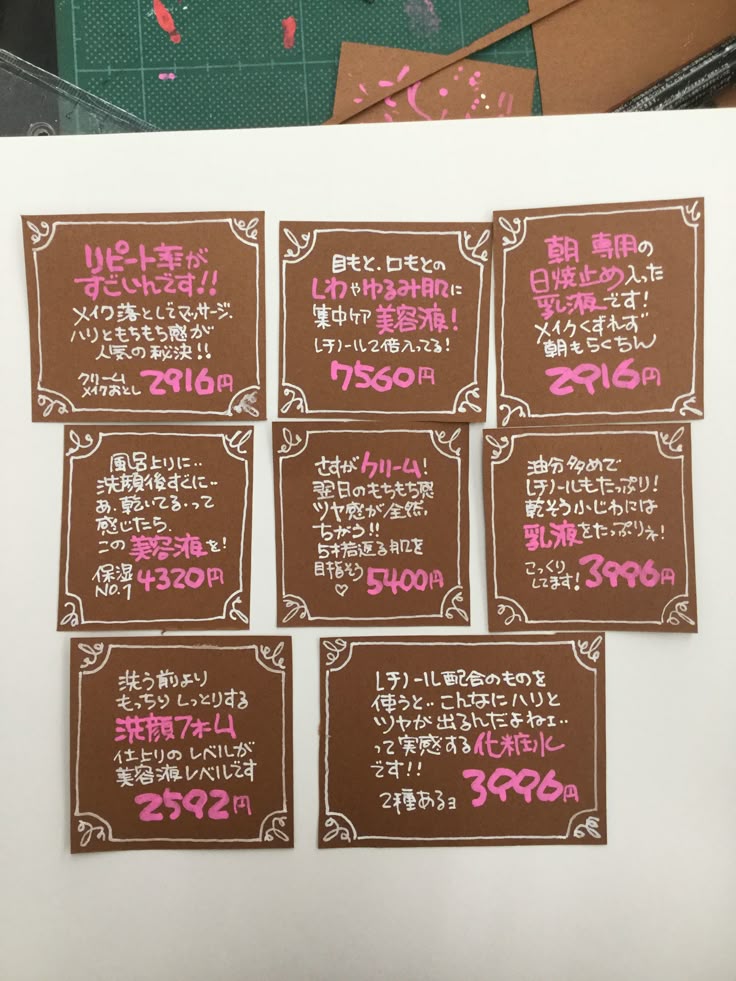 リピート率が
すごいんです!!
メイク落としてマッサージ.
ハリともちもち感が
人気の秘決!!
クリーム
メイクおとし 2916円
目もと、口もとの
しわやゆるみ肌に
集中ケア 美容液!
レチノール2倍入ってる!
7560円
朝 専用の
日焼止め入った
乳液です!
メイクくずれず
朝もらくちん
2916円
風呂上りに..
洗顔後すぐに..
あ、乾いてる..って
感じたら、
この美容液を!
保湿
NO.1 4320円
さすがクリーム!
翌日のもちもち感
ツヤ感が全然、
ちがう!!
5才若返る肌を
目指そう
♡ 5400円
油分多めで
レチノールもたっぷり!
乾そう小じわには
乳液をたっぷりネ!
こっくり
してます! 3996円
洗う前より
もっちりしっとりする
洗顔フォーム
仕上りのレベルが
美容液レベルです
2592円
レチノール配合のものを
使うと..こんなにハリと
ツヤが出るんだよねェ..
って実感する化粧水
です!!
2種あるヨ 3996円